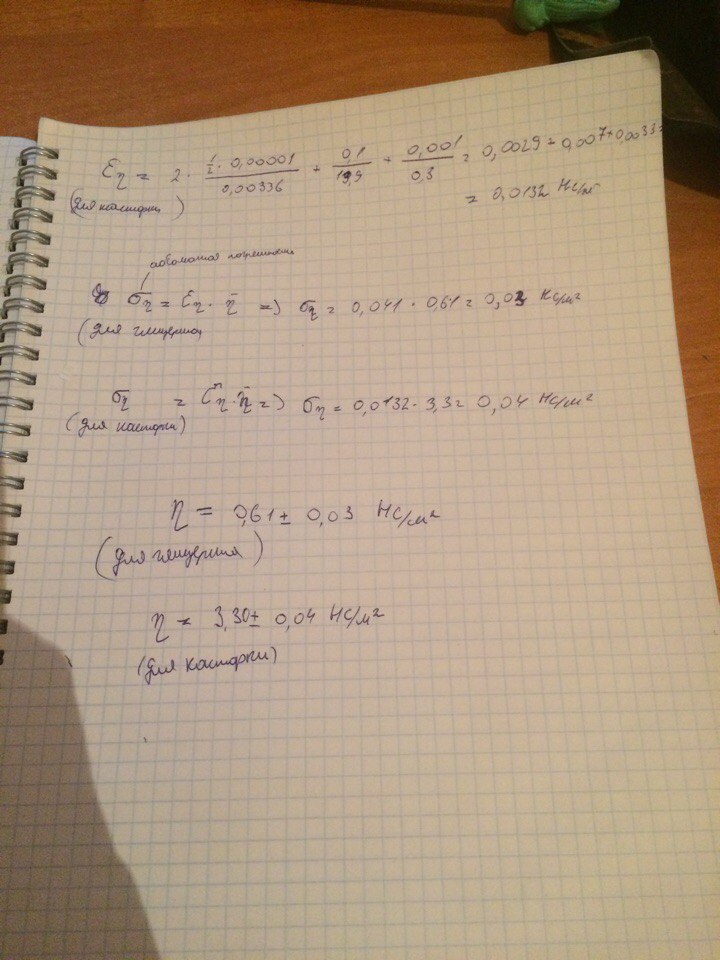 εη = 2 · (½ · 0,00001)/0,00336 + 0,1/ + 0,001/0,3 = 0,0029 + 0,007 + 0,0033 =
(для касторки)
= 0,0132 Нс/м²
абсолютная погрешность
ση = εη · η̄ => ση = 0,041 · 0,61 = 0,03 Нс/м²
(для глицерина)
ση = εη · η̄ => ση = 0,0132 · 3,3 = 0,04 Нс/м²
(для касторки)
η = 0,61 ± 0,03 Нс/м²
(для глицерина)
η = 3,30 ± 0,04 Нс/м²
(для касторки)